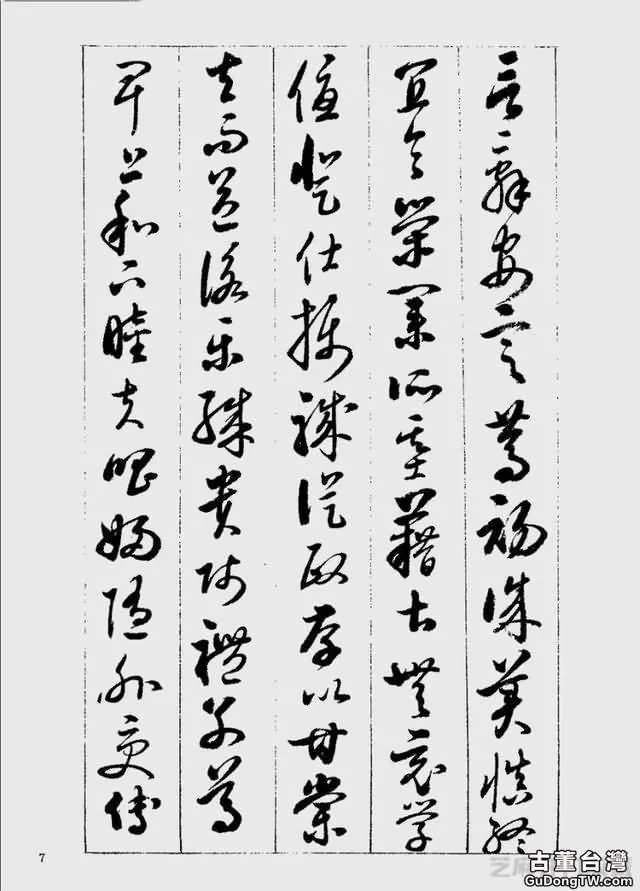 言辭安定篤初誠美慎終
宜令榮業所基籍甚無竟學
優登仕攝職從政存以甘棠
去而益詠樂殊貴賤禮別尊
卑上和下睦夫唱婦隨外受傅
7
古董台灣
GuDongTW.com